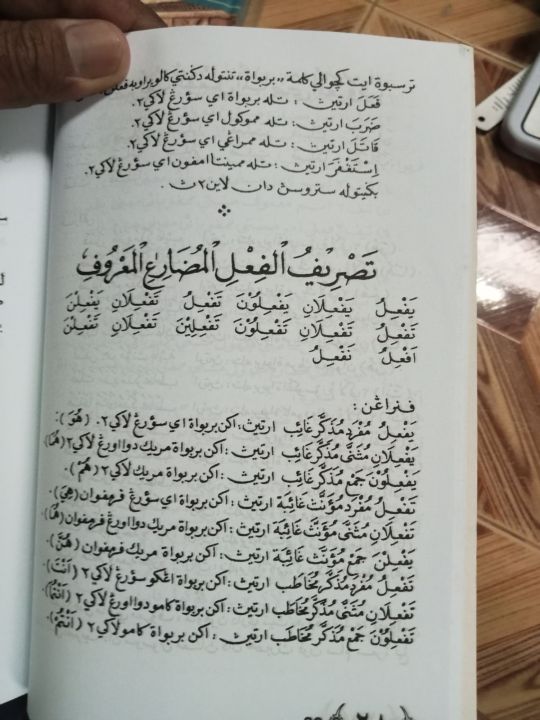 ترسبوة ايت كچوالي كلمة «بربواة» تنتوله دݢنتي كالو براوبه فعلن.
فَعَلَ ارتيڽ : تله بربواة اي سؤرڠ لاكي٢.
ضَرَبَ ارتيڽ : تله مموكول اي سؤرڠ لاكي٢.
قَاتَلَ ارتيڽ : تله ممراڠي اي سؤرڠ لاكي٢.
اِسْتَغْفَرَ ارتيڽ : تله ممينتا امفون اي سؤرڠ لاكي٢.
بݢيتوله ستروسڽ دان لاين٢ڽ .
تَصْرِيفُ الْفِعْلِ الْمُضَارِعِ الْمَعْرُوفِ
يَفْعِلُ يَفْعِلَانِ يَفْعِلُوْنَ تَفْعِلُ تَفْعِلَانِ يَفْعِلْنَ
تَفْعِلُ تَفْعِلَانِ تَفْعِلُوْنَ تَفْعِلِيْنَ تَفْعِلَانِ تَفْعِلْنَ
اَفْعِلُ نَفْعِلُ
فنراڠن :
يَفْعِلُ مُفْرَد مُذَكَّر غَائِب ارتيڽ : اكن بربواة اي سؤرڠ لاكي٢. (هُوَ).
يَفْعِلَانِ مُثَنَّى مُذَكَّر غَائِب ارتيڽ : اكن بربواة مريك دوا اورڠ لاكي٢ (هُمَا).
يَفْعِلُوْنَ جَمْع مُذَكَّر غَائِب ارتيڽ : اكن بربواة مريك لاكي٢ (هُمْ).
تَفْعِلُ مُفْرَد مُؤَنَّث غَائِبَة ارتيڽ : اكن بربواة اي سؤرڠ فرمفوان (هِيَ).
تَفْعِلَانِ مُثَنَّى مُؤَنَّث غَائِبَة ارتيڽ : اكن بربواة مريك دوا اورڠ فرمفوان (هُمَا).
يَفْعِلْنَ جَمْع مُؤَنَّث غَائِبَة ارتيڽ : اكن بربواة مريك فرمفوان (هُنَّ).
تَفْعِلُ مُفْرَد مُذَكَّر مُخَاطَب ارتيڽ : اكن بربواة اڠكو سؤرڠ لاكي٢ (اَنْتَ).
تَفْعِلَانِ مُثَنَّى مُذَكَّر مُخَاطَب ارتيڽ : اكن بربواة كامو دوا اورڠ لاكي٢ (اَنْتُمَا).
تَفْعِلُوْنَ جَمْع مُذَكَّر مُخَاطَب ارتيڽ : اكن بربواة كامو لاكي٢ (اَنْتُمْ).